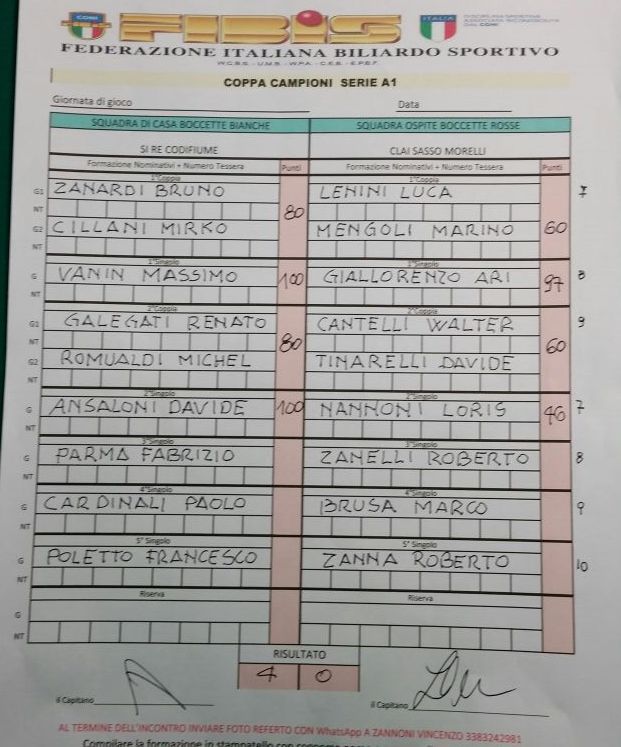 CONI
FIBIS
ITALIA
DISCIPLINA SPORTIVA
ASSOCIATA RICONOSCIUTA
DAL CONI
FEDERAZIONE ITALIANA BILIARDO SPORTIVO
W.C.B.S. - U.M.B. - W.P.A. - C.E.B. - E.P.B.F.
COPPA CAMPIONI SERIE A1
Giornata di gioco Data
SQUADRA DI CASA BOCCETTE BIANCHE SQUADRA OSPITE BOCCETTE ROSSE
SI RE CODIFIUME CLAI SASSO MORELLI
Formazione Nominativi + Numero Tessera Punti Formazione Nominativi + Numero Tessera Punti
1°Coppia 1°Coppia
G1 ZANARDI BRUNO 80 LENINI LUCA 60 7
NT
G2 CILLANI MIRKO MENGOLI MARINO
NT
1°Singolo 1°Singolo
G VANIN MASSIMO 100 GIALLORENZO ARI 97 8
NT
2°Coppia 2°Coppia
G1 GALEGATI RENATO 80 CANTELLI WALTER 60 9
NT
G2 ROMUALDI MICHEL TINARELLI DAVIDE
NT
2°Singolo 2°Singolo
G ANSALONI DAVIDE 100 NANNONI LORIS 46 7
NT
3°Singolo 3°Singolo
G PARMA FABRIZIO ZANELLI ROBERTO 8
NT
4°Singolo 4°Singolo
G CARDINALI PAOLO BRUSA MARCO 9
NT
5° Singolo 5° Singolo
G POLETTO FRANCESCO ZANNA ROBERTO 10
NT
Riserva Riserva
G
NT
RISULTATO
4 0
il Capitano il Capitano
AL TERMINE DELL'INCONTRO INVIARE FOTO REFERTO CON WhatsApp A ZANNONI VINCENZO 3383242981
Compilare la formazione in stampatello con